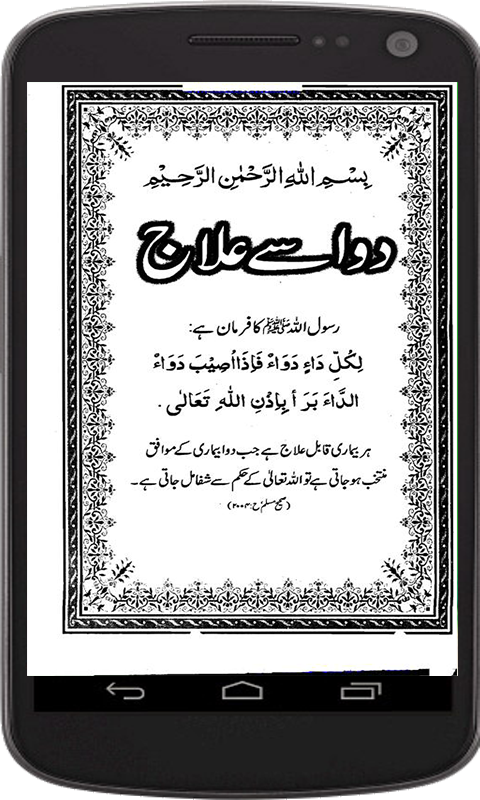 بِسْمِ اللهِ الرَّحْمٰنِ الرَّحِيْمِ
دوا سے علاج
رسول اللہ ﷺ کا فرمان ہے:
لِكُلِّ دَاءٍ دَوَاءٌ فَإِذَا اُصِيْبَ دَوَاءُ
الدَّاءَ بَرَأَ بِاِذْنِ اللهِ تَعَالٰى.
ہر بیماری قابل علاج ہے جب دوا بیماری کے موافق
منتخب ہو جاتی ہے تو اللہ تعالیٰ کے حکم سے شفا مل جاتی ہے۔